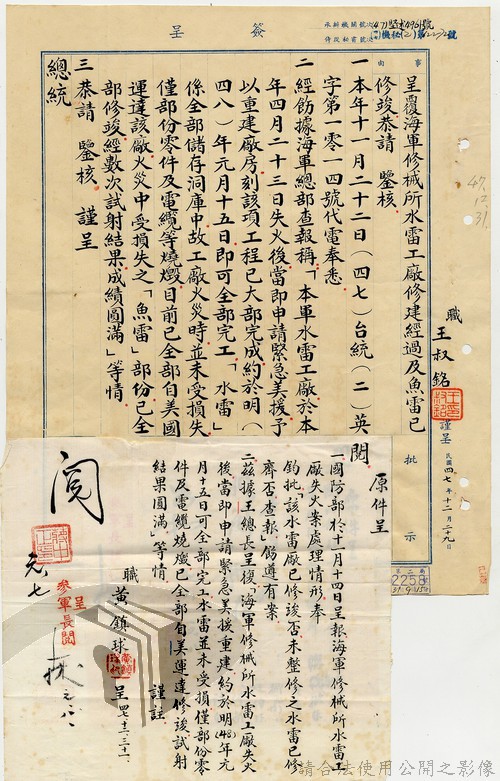 簽呈
事由
呈覆海軍修械所水雷工廠修建經過及魚雷已
修竣恭請 鑒核
職 王叔銘 謹呈 民國四七年十二月二九日
批示
一本年十一月二十二日(四七)台統(二)英
字第一零一四號代電奉悉
二經飭據海軍總部查報稱「本軍水雷工廠於本
年四月二十三日失火後當即申請緊急美援予
以重建廠房刻該項工程已大部完成約於明(
四八)年元月十五日即可全部完工「水雷」
係全部儲存洞庫中故工廠火災時並未受損失
僅部份零件及電纜等燒燬目前已全部自美國
運達該廠火災中受損失之「魚雷」部份已全
部修竣經數次試射結果成績圓滿」等情
三恭請 鑒核 謹呈
總統
47.
12.
31.
2258
閱
原件呈
一國防部於十一月十四日呈報海軍修械所水雷工
廠失火案處理情形奉
鈞批「該水雷廠已修竣否未整修之水雷已修
齊否查報」飭遵有案
二茲據王總長呈復「海軍修械所水雷工廠失火
後當即申請緊急美援重建約於明(48)年元
月十五日可全部完工水雷並未受損僅部份零
件及電纜燒燬已全部自美運達修竣試射
結果圓滿」等情
謹註
職 黃鎮球 呈 四七.十二.三十一
呈
參軍長閱
閱
元七
請合法使用公開之影像